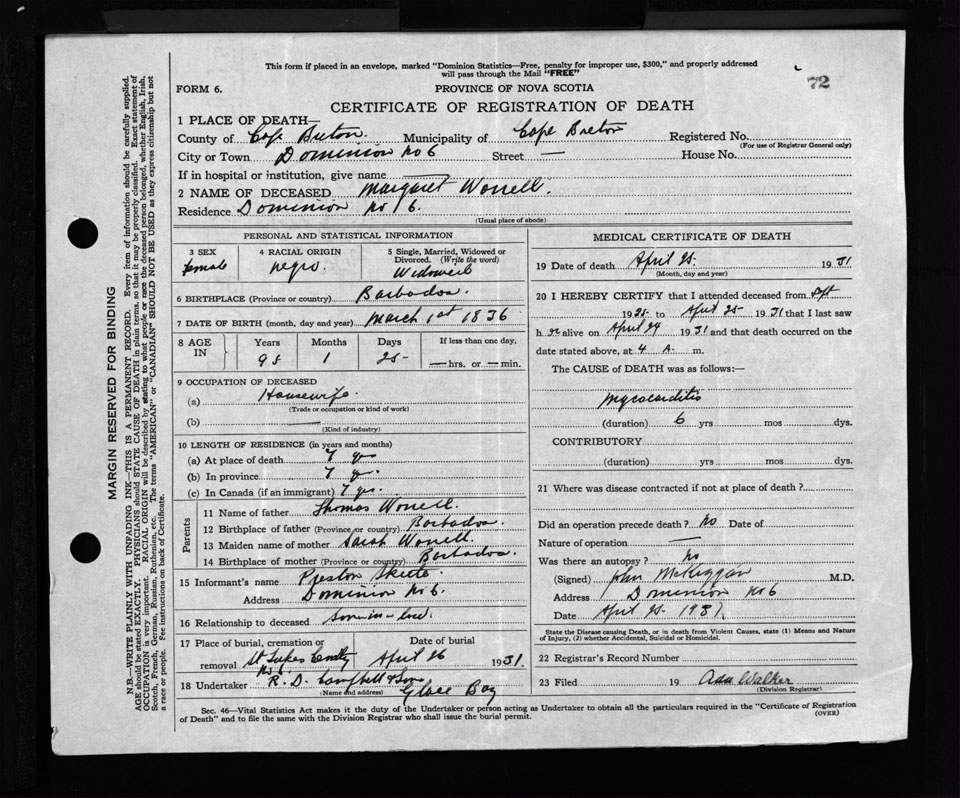 This form if placed in an envelope, marked "Dominion Statistics—Free, penalty for improper use, $300," and properly addressed
will pass through the Mail "FREE"
72
FORM 6.
PROVINCE OF NOVA SCOTIA
CERTIFICATE OF REGISTRATION OF DEATH
1 PLACE OF DEATH—
County of Cape Breton. Municipality of Cape Breton Registered No.
(For use of Registrar General only)
City or Town Dominion No 6 Street — House No.
If in hospital or institution, give name —
2 NAME OF DECEASED Margaret Worrell.
Residence Dominion No 6.
(Usual place of abode)
PERSONAL AND STATISTICAL INFORMATION
3 SEX 4 RACIAL ORIGIN 5 Single, Married, Widowed or
Divorced. (Write the word)
Female negro. Widowed
6 BIRTHPLACE (Province or country) Barbados.
7 DATE OF BIRTH (month, day and year) March 1st 1836
8 AGE IN Years Months Days If less than one day,
95 1 25 — hrs. or — min.
9 OCCUPATION OF DECEASED
(a) Housewife.
(Trade or occupation or kind of work)
(b) —
(Kind of industry)
10 LENGTH OF RESIDENCE (in years and months)
(a) At place of death 7 yrs
(b) In province 7 yr.
(c) In Canada (if an immigrant) 7 yrs.
Parents
11 Name of father Thomas Worrell.
12 Birthplace of father (Province or country) Barbados.
13 Maiden name of mother Sarah Worrell.
14 Birthplace of mother (Province or country) Barbados.
15 Informant's name Preston Skeete
Address Dominion No 6.
16 Relationship to deceased Son-in-law.
17 Place of burial, cremation or
removal St Lukes Date of burial April 26 1931.
18 Undertaker R. D. Campbell & Sons
(Name and address) Glace Bay
MEDICAL CERTIFICATE OF DEATH
19 Date of death April 25. 1931
(Month, day and year)
20 I HEREBY CERTIFY that I attended deceased from Sept
1925 to April 25 1931 that I last saw
her alive on April 24 1931 and that death occurred on the
date stated above, at 4 A. m.
The CAUSE of DEATH was as follows:—
Myocarditis
(duration) 6 yrs mos dys.
CONTRIBUTORY
(duration) yrs mos dys.
21 Where was disease contracted if not at place of death?
Did an operation precede death? No Date of
Nature of operation —
Was there an autopsy? No
(Signed) John McKiggan M.D.
Address Dominion No 6
Date April 25- 1931
State the Disease causing Death, or in death from Violent Causes, state (1) Means and Nature
of Injury, (2) whether Accidental, Suicidal or Homicidal.
22 Registrar's Record Number
23 Filed 19 Ada Walker
(Division Registrar)
Sec. 46—Vital Statistics Act makes it the duty of the Undertaker or person acting as Undertaker to obtain all the particulars required in the "Certificate of Registration
of Death" and to file the same with the Division Registrar who shall issue the burial permit.
(OVER)
MARGIN RESERVED FOR BINDING
N.B.—WRITE PLAINLY WITH UNFADING INK—THIS IS A PERMANENT RECORD. Every item of information should be carefully supplied.
AGE should be stated EXACTLY. PHYSICIANS should STATE CAUSE OF DEATH in plain terms, so that it may be properly classified. Exact statement of
OCCUPATION is very important. RACIAL ORIGIN will be described by stating to what people or race the deceased person belonged, whether English, Irish,
Scotch, French, German, Russian, Ruthenian, etc. The terms "AMERICAN" or "CANADIAN" SHOULD NOT BE USED as they express citizenship but not
a race or people. Fee instructions on back of Certificate.